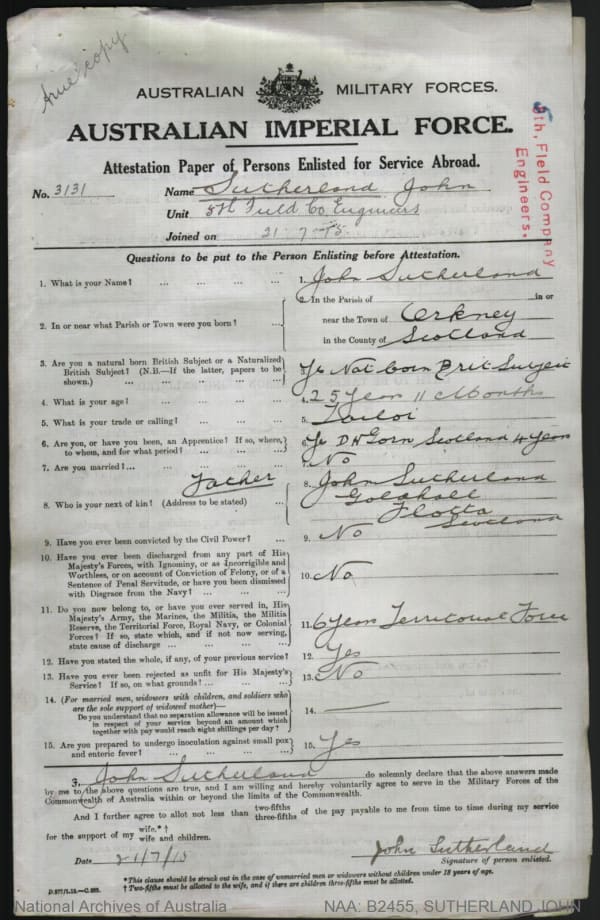 True copy
AUSTRALIAN MILITARY FORCES.
AUSTRALIAN IMPERIAL FORCE.
Attestation Paper of Persons Enlisted for Service Abroad.
5th, Field Company
Engineers.
No. 3131 Name Sutherland John
Unit 5th Field Co Engineers
Joined on 21 - 7 - 15.
Questions to be put to the Person Enlisting before Attestation.
1. What is your Name? ... ... ... 1. John Sutherland
2. In or near what Parish or Town were you born? ... ... 2. In the Parish of in or
near the Town of Orkney
in the County of Scotland
3. Are you a natural born British Subject or a Naturalized
British Subject? (N.B.—If the latter, papers to be
shown.) ... ... ... ... 3. Yes Nat born Brit Subject
4. What is your age? ... ... ... ... 4. 25 Years 11 Months
5. What is your trade or calling? ... ... ... 5. Tailor
6. Are you, or have you been, an Apprentice? If so, where,
to whom, and for what period? ... ... ... 6. Yes D H Gorn Scotland 4 Years
7. Are you married?... ... ... ... ... 7. No
Father
8. Who is your next of kin? (Address to be stated) ... 8. John Sutherland
Flotta
Scotland
9. Have you ever been convicted by the Civil Power? ... 9. No
10. Have you ever been discharged from any part of His
Majesty's Forces, with Ignominy, or as Incorrigible and
Worthless, or on account of Conviction of Felony, or of a
Sentence of Penal Servitude, or have you been dismissed
with Disgrace from the Navy? ... ... ... 10. No
11. Do you now belong to, or have you ever served in, His
Majesty's Army, the Marines, the Militia, the Militia
Reserve, the Territorial Force, Royal Navy, or Colonial
Forces? If so, state which, and if not now serving,
state cause of discharge ... ... ... ... 11. 6 Years Territorial Force
12. Have you stated the whole, if any, of your previous service? 12. Yes
13. Have you ever been rejected as unfit for His Majesty's
Service? If so, on what grounds? ... ... ... 13. No
14. (For married men, widowers with children, and soldiers who
are the sole support of widowed mother)—
Do you understand that no separation allowance will be issued
in respect of your service beyond an amount which
together with pay would reach eight shillings per day? 14. —
15. Are you prepared to undergo inoculation against small pox
and enteric fever? ... ... ... ... 15. Yes
I, John Sutherland do solemnly declare that the above answers made
by me to the above questions are true, and I am willing and hereby voluntarily agree to serve in the Military Forces of the
Commonwealth of Australia within or beyond the limits of the Commonwealth.
And I further agree to allot not less than two-fifths three-fifths of the pay payable to me from time to time during my service
for the support of my wife.*† wife and children.
Date 21/7/15 John Sutherland
Signature of person enlisted.
*This clause should be struck out in the case of unmarried men or widowers without children under 18 years of age.
† Two-fifths must be allotted to the wife, and if there are children three-fifths must be allotted.
National Archives of Australia NAA: B2455, SUTHERLAND JOHN